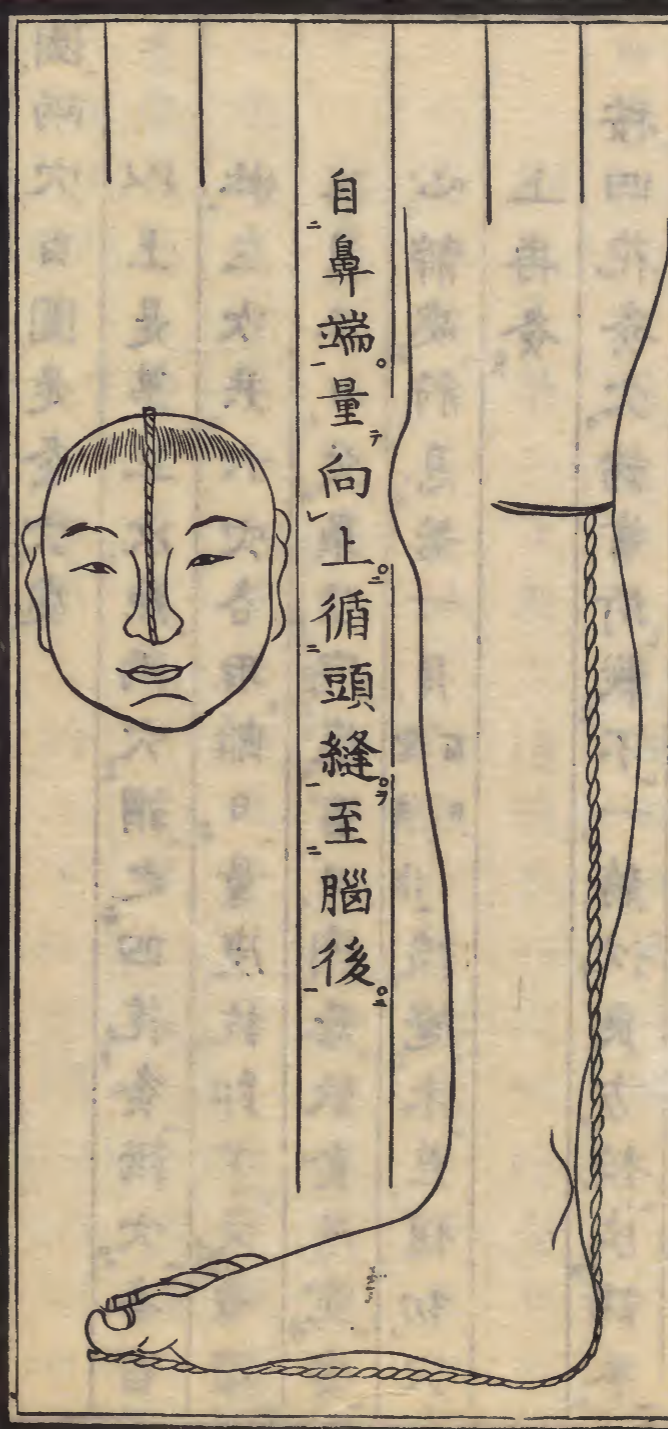 自鼻端量向上循頭縫至腦後